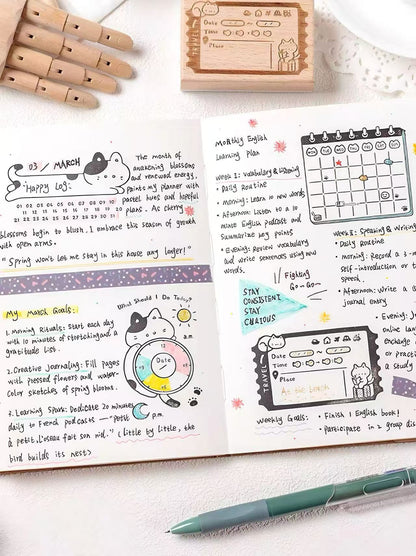 Date
Time
Place
03 / MARCH
"Happy Log"
01 02 03 04 05 06 07 08 09 10
11 12 13 14 15 16 17 18 19 20
21 22 23 24 25 26 27 28 29 30 31
The month of
awakening blossoms
and renewed energy,
paints my planner with
pastel hues and hopeful
plans. As cherry
blossoms begin to blush, I embrace this season of growth
with open arms.
"Spring won't let me stay in this house any longer!"
My March Goals:
1. Morning Rituals: Start each
day with 10 minutes of stretching and a
gratitude list.
2. Creative Journaling: Fill pages
with pressed flowers and water-
color sketches of spring blooms.
3. Learning Spark: Dedicate 20 minutes
daily to French podcasts — "Petit
à petit, l'oiseau fait son nid." (Little by little, the
bird builds its nest)
What Should I Do Today?
Date
a.m.
p.m.
Monthly English
Learning Plan
Week 1: Vocabulary & Listening
• Daily Routine
• Morning: Learn 10 new words
• Afternoon: Listen to a 10
minute English podcast and
summarize key points
• Evening: Review vocabulary
and write sentences using new
words.
STAY
CONSISTENT,
STAY
CURIOUS
Fighting
Go~Go~
Week 2: Speaking & Writing
• Daily Routine
• Morning: Record a 3-m
self-introduction or
speech.
• Afternoon: Write a
journal entry
• Evening: Jo
online En
exchange
or prac
a study
TRAVEL
Date
Time
Place
At the beach
Weekly Goals:
• Finish 1 English book!
• Participate in 2 group dis